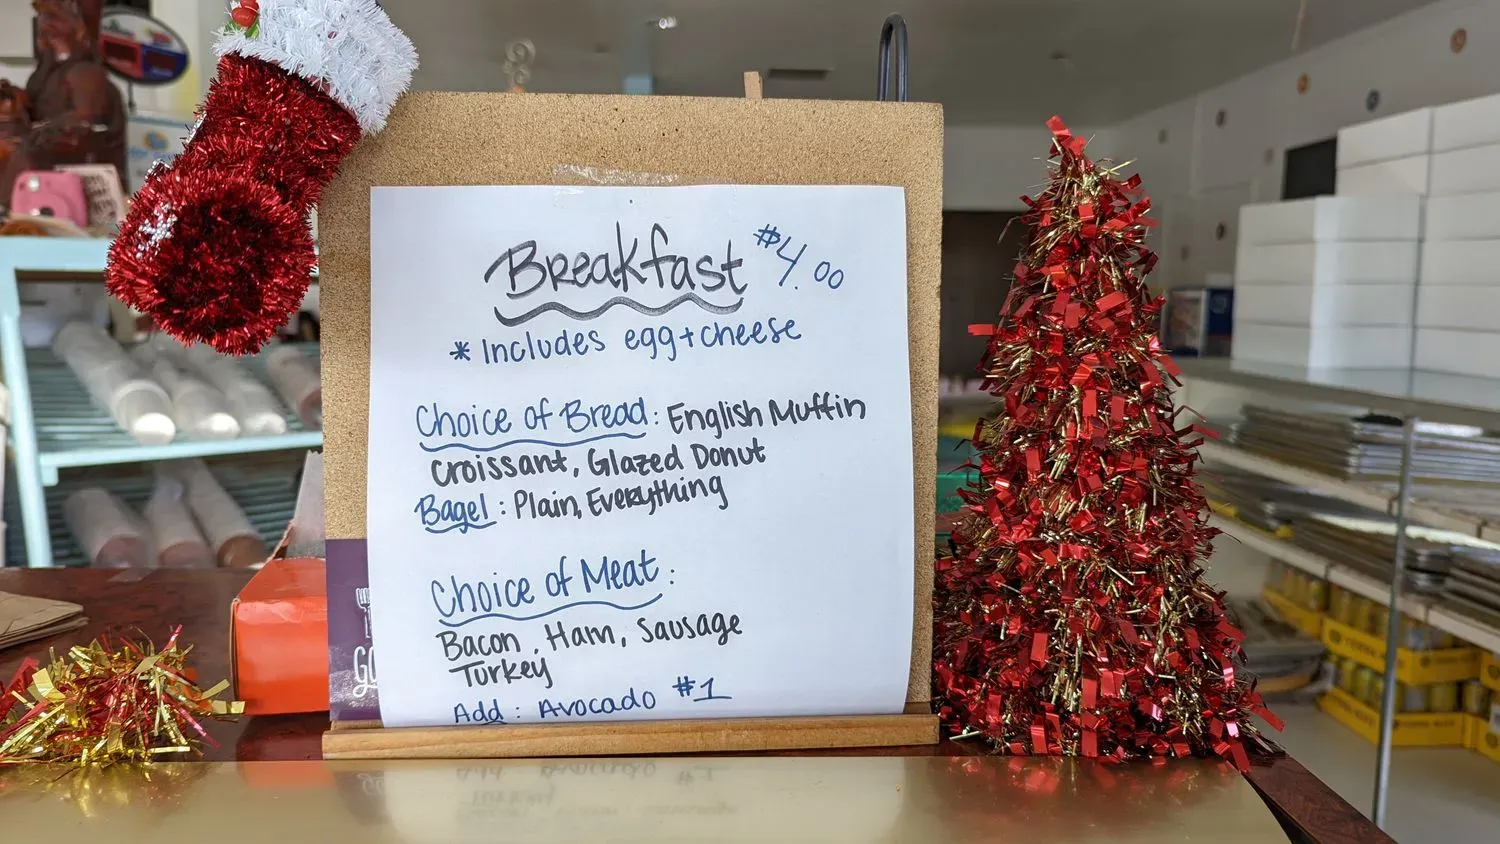 Breakfast $4.00
* Includes egg + cheese
Choice of Bread: English Muffin
Croissant, Glazed Donut
Bagel: Plain, Everything
Choice of Meat:
Bacon, Ham, Sausage
Turkey
Add: Avocado $1